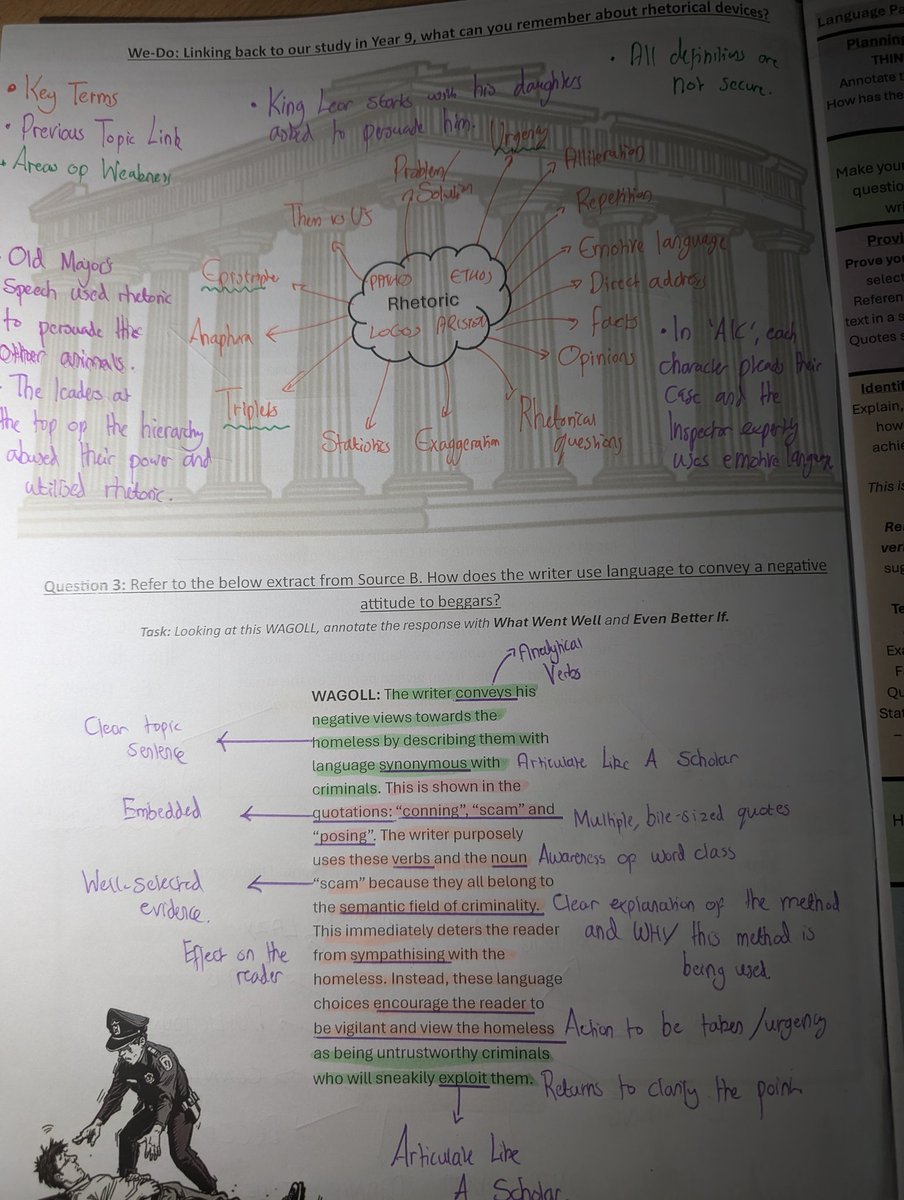 We-Do: Linking back to our study in Year 9, what can you remember about rhetorical devices?
• Key Terms
• Previous Topic Link
• Areas of Weakness
• King Lear starts with his daughters
asked to persuade him.
• All definitions are
not secure.
Urgency
Alliteration
Problem/
Solution
Repetition
Them vs US
Emotive language
Epistrophe
PATHOS
ETHOS
Rhetoric
LOGOS
Direct address
Anaphora
facts
Opinions
Triplets
Statistics
Exaggeration
Rhetorical
questions
• Old Major's
Speech used rhetoric
to persuade the
other animals.
• The leaders at
the top of the hierarchy
abused their power and
utilised rhetoric.
• In 'AIC', each
character pleads their
case and the
Inspector expertly
uses emotive language
Question 3: Refer to the below extract from Source B. How does the writer use language to convey a negative
attitude to beggars?
Task: Looking at this WAGOLL, annotate the response with What Went Well and Even Better If.
Analytical
Verbs
WAGOLL: The writer conveys his
negative views towards the
homeless by describing them with
language synonymous with
criminals. This is shown in the
quotations: “conning”, “scam” and
“posing”. The writer purposely
uses these verbs and the noun
“scam” because they all belong to
the semantic field of criminality.
This immediately deters the reader
from sympathising with the
homeless. Instead, these language
choices encourage the reader to
be vigilant and view the homeless
as being untrustworthy criminals
who will sneakily exploit them.
Clear topic
sentence
Embedded
Well-selected
evidence.
Effect on the
reader
Articulate Like A Scholar
Multiple, bite-sized quotes
Awareness of word class
Clear explanation of the method
and WHY this method is
being used.
Action to be taken/urgency
Returns to clarify the point
Articulate Like
A Scholar.
Language Pa
Planning
THIN
Annotate t
How has the
Make your
questio
wri
Provi
Prove you
select
Referen
text in a s
Quotes s
Identif
Explain,
how
achie
This is
Re
ver
sug
Te
Exa
F
Qu
Stat
H